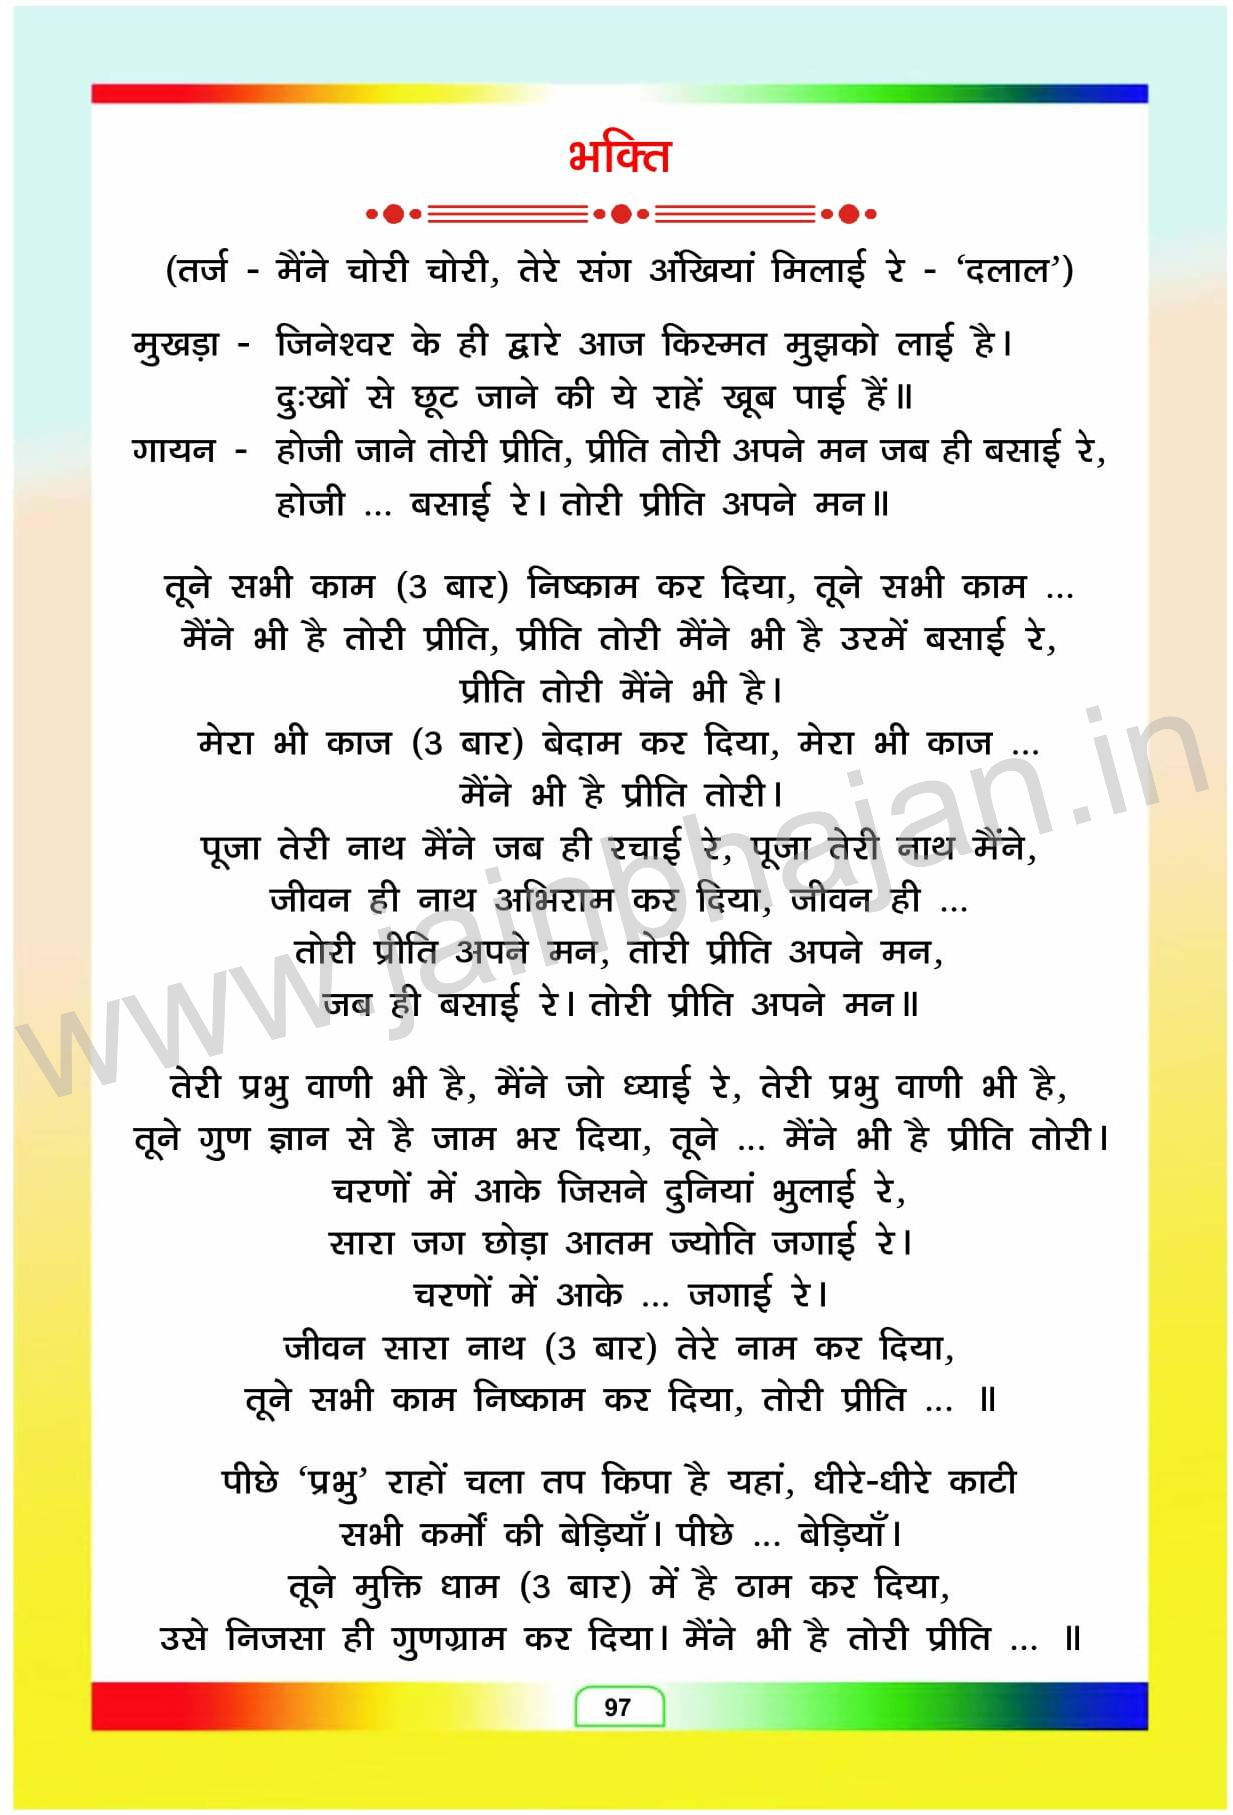 भक्ति
(तर्ज - मैंने चोरी चोरी, तेरे संग अंखियां मिलाई रे - ‘दलाल’)
मुखड़ा - जिनेश्वर के ही द्वारे आज किस्मत मुझको लाई है।
दुःखों से छूट जाने की ये राहें खूब पाई हैं॥
गायन - होजी जाने तोरी प्रीति, प्रीति तोरी अपने मन जब ही बसाई रे,
होजी ... बसाई रे। तोरी प्रीति अपने मन॥
तूने सभी काम (3 बार) निष्काम कर दिया, तूने सभी काम ...
मैंने भी है तोरी प्रीति, प्रीति तोरी मैंने भी है उरमें बसाई रे,
प्रीति तोरी मैंने भी है।
मेरा भी काज (3 बार) बेदाम कर दिया, मेरा भी काज ...
मैंने भी है प्रीति तोरी।
पूजा तेरी नाथ मैंने जब ही रचाई रे, पूजा तेरी नाथ मैंने,
जीवन ही नाथ अभिराम कर दिया, जीवन ही ...
तोरी प्रीति अपने मन, तोरी प्रीति अपने मन,
जब ही बसाई रे। तोरी प्रीति अपने मन॥
www.jainbhajan.in
तेरी प्रभु वाणी भी है, मैंने जो ध्याई रे, तेरी प्रभु वाणी भी है,
तूने गुण ज्ञान से है जाम भर दिया, तूने ... मैंने भी है प्रीति तोरी।
चरणों में आके जिसने दुनियां भुलाई रे,
सारा जग छोड़ा आतम ज्योति जगाई रे।
चरणों में आके ... जगाई रे।
जीवन सारा नाथ (3 बार) तेरे नाम कर दिया,
तूने सभी काम निष्काम कर दिया, तोरी प्रीति ... ॥
पीछे ‘प्रभु’ राहों चला तप किपा है यहां, धीरे-धीरे काटी
सभी कर्मों की बेड़ियाँ। पीछे ... बेड़ियाँ।
तूने मुक्ति धाम (3 बार) में है ठाम कर दिया,
उसे निजसा ही गुणग्राम कर दिया। मैंने भी है तोरी प्रीति ... ॥
97